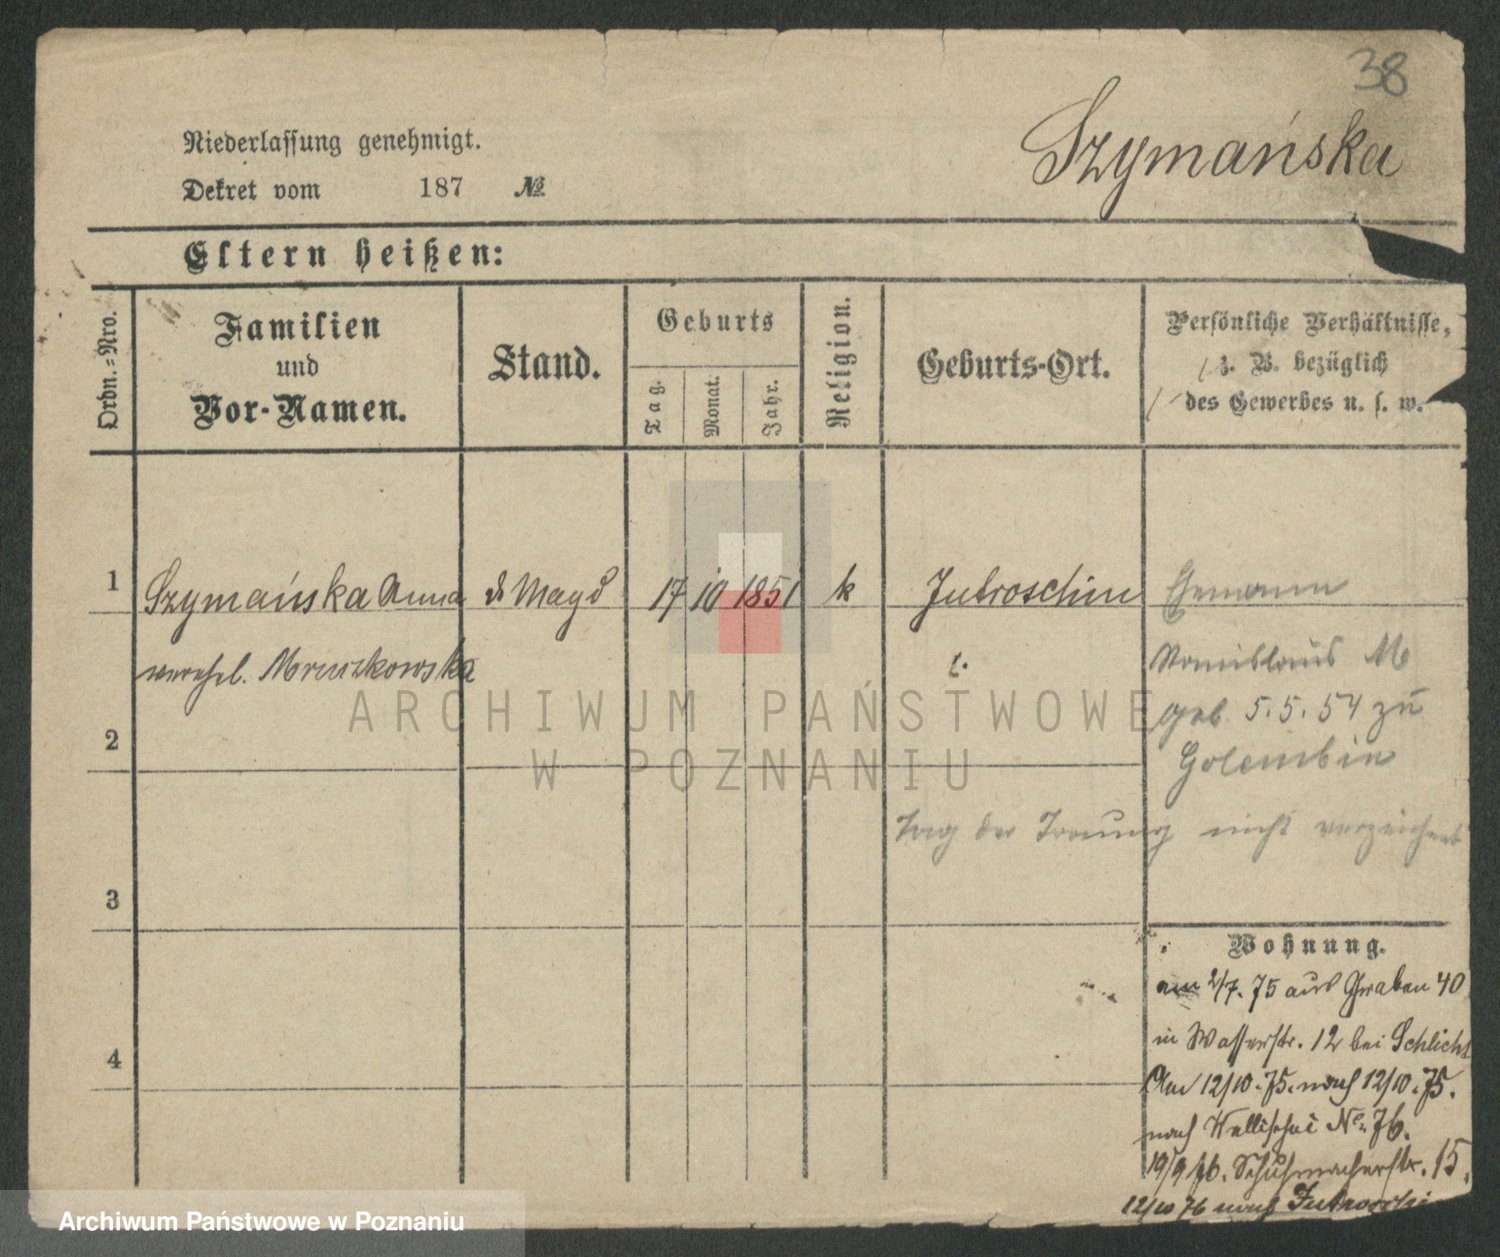 38
Szymańska
Niederlassung genehmigt.
Dekret vom 187 №
Eltern heißen:
Ordn.-Nro.
Familien
und
Vor-Namen.
Stand.
Geburts
Tag.
Monat.
Jahr.
Religion.
Geburts-Ort.
Persönliche Verhältnisse,
z. B. bezüglich
des Gewerbes u. s. w.
1 Szymańska Anna d Magd 17 10 1851 k Jutroschin Ehemann
verehel. Mruczkowska
Stanislaus M
geb. 5.5.54 zu
Golembin
2
Tag der Trauung nicht verzeichnet
3
4
Wohnung.
am 2/7. 75 aus Graben 40
in Wasserstr. 12 bei Schlicht
Am 12/10. 75. nach 12/10. 75.
nach Wallischei No. 76.
19/9 76. Schuhmacherstr. 15.
12/10 76 nach Jutroschin
ARCHIWUM PAŃSTWOWE
W POZNANIU
Archiwum Państwowe w Poznaniu